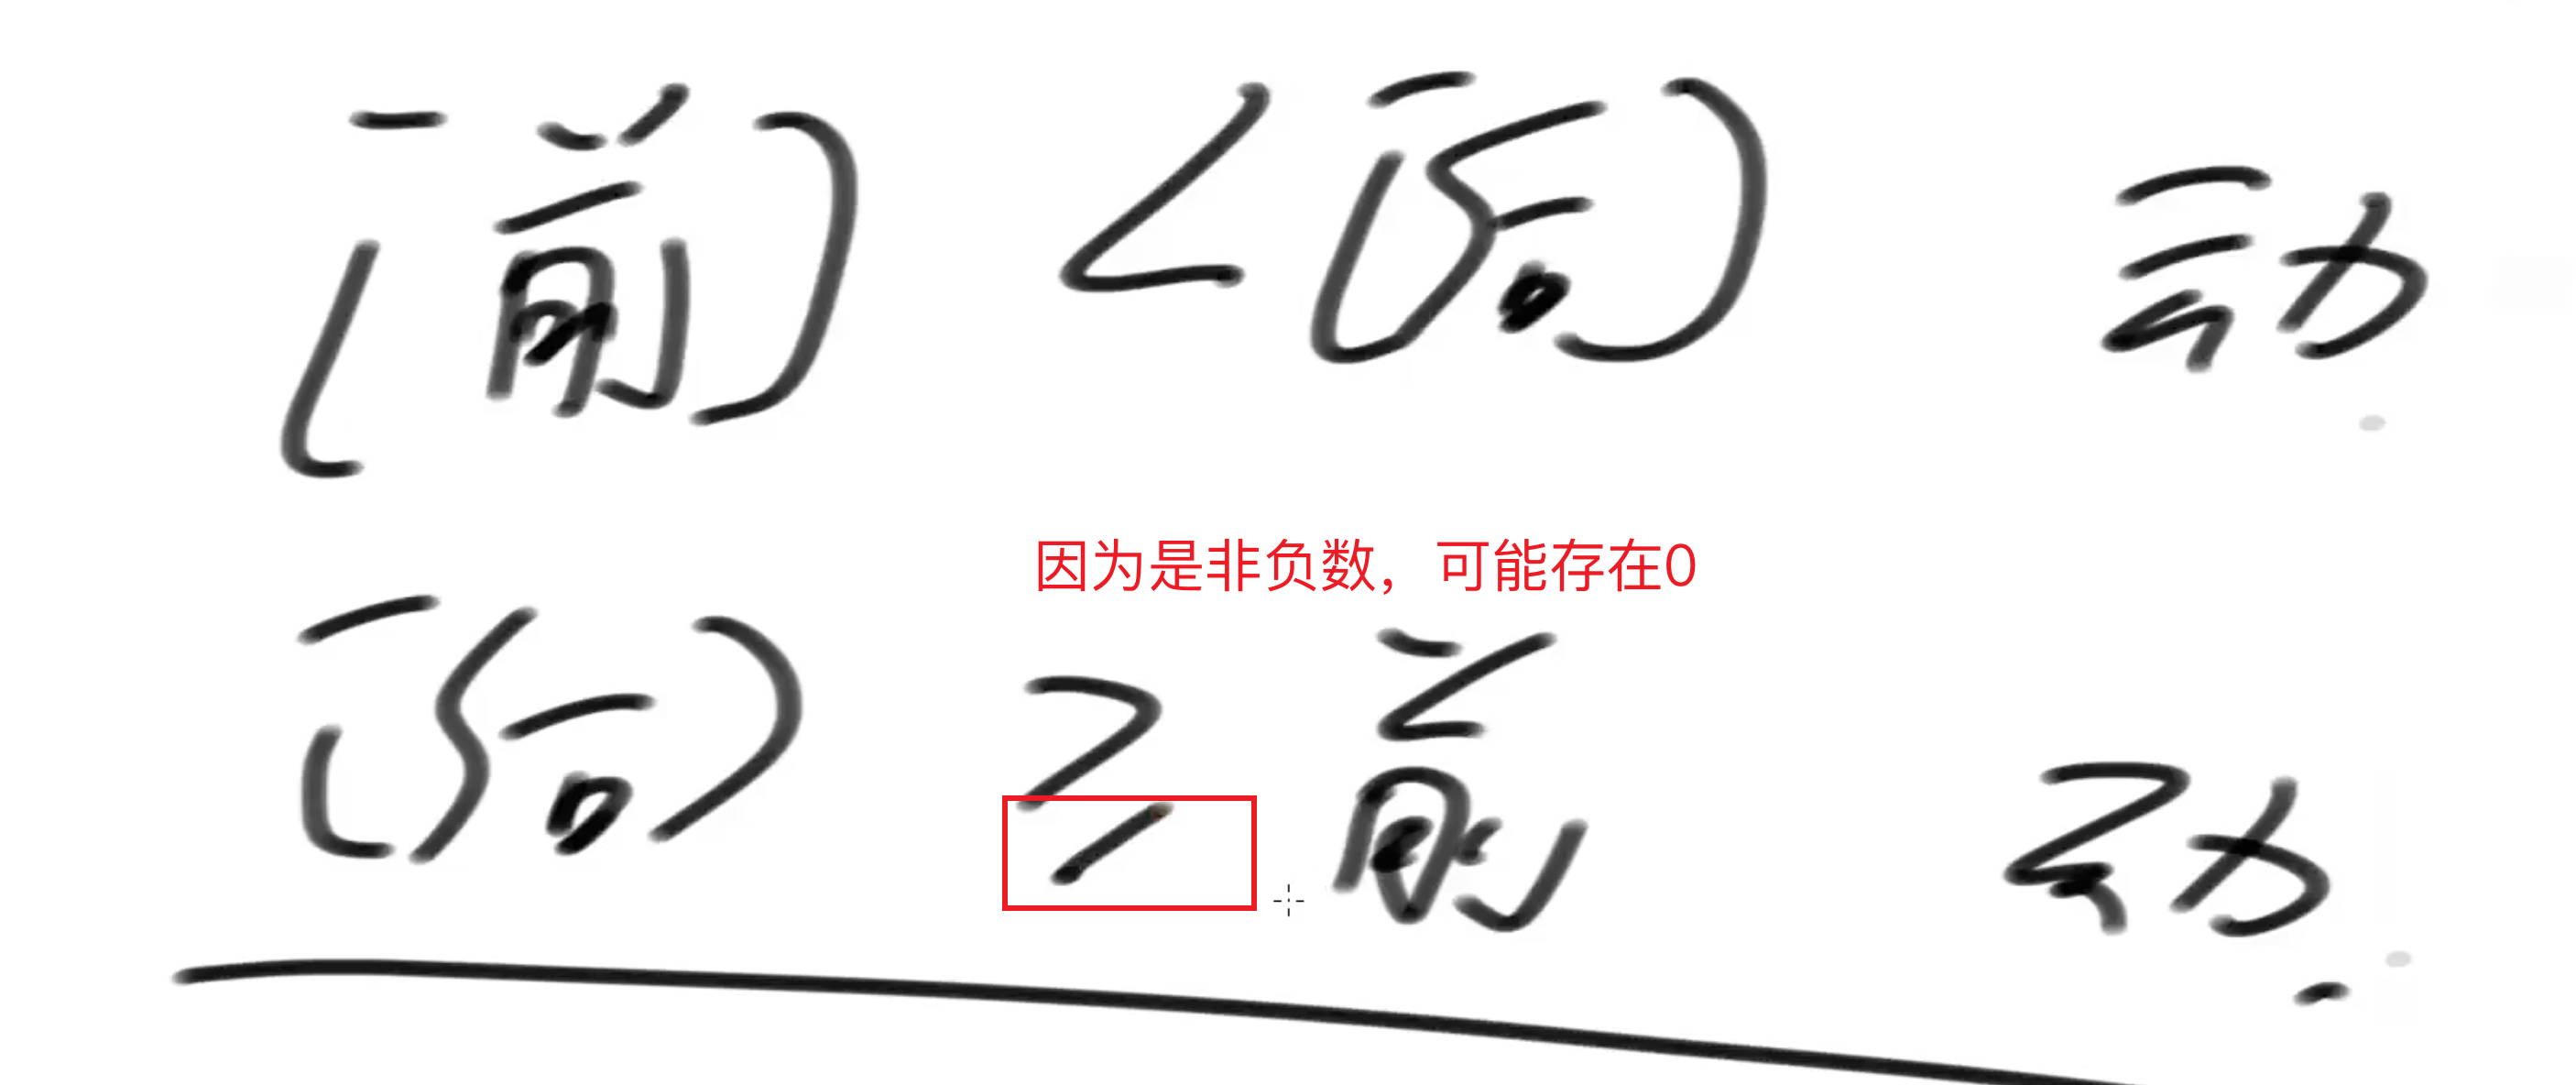 (前) < (后) 动
因为是非负数，可能存在0
(后) ≥ 前 动